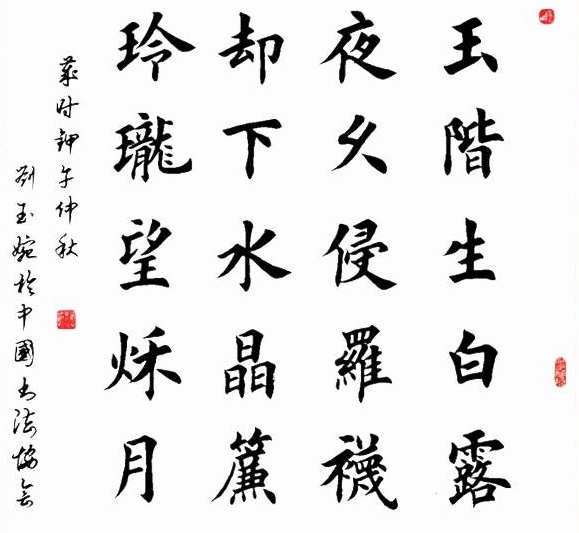 玉階生白露
夜久侵羅襪
却下水晶簾
玲瓏望秌月
歲时鉀午仲秋
劉玉婉於中國书法協会